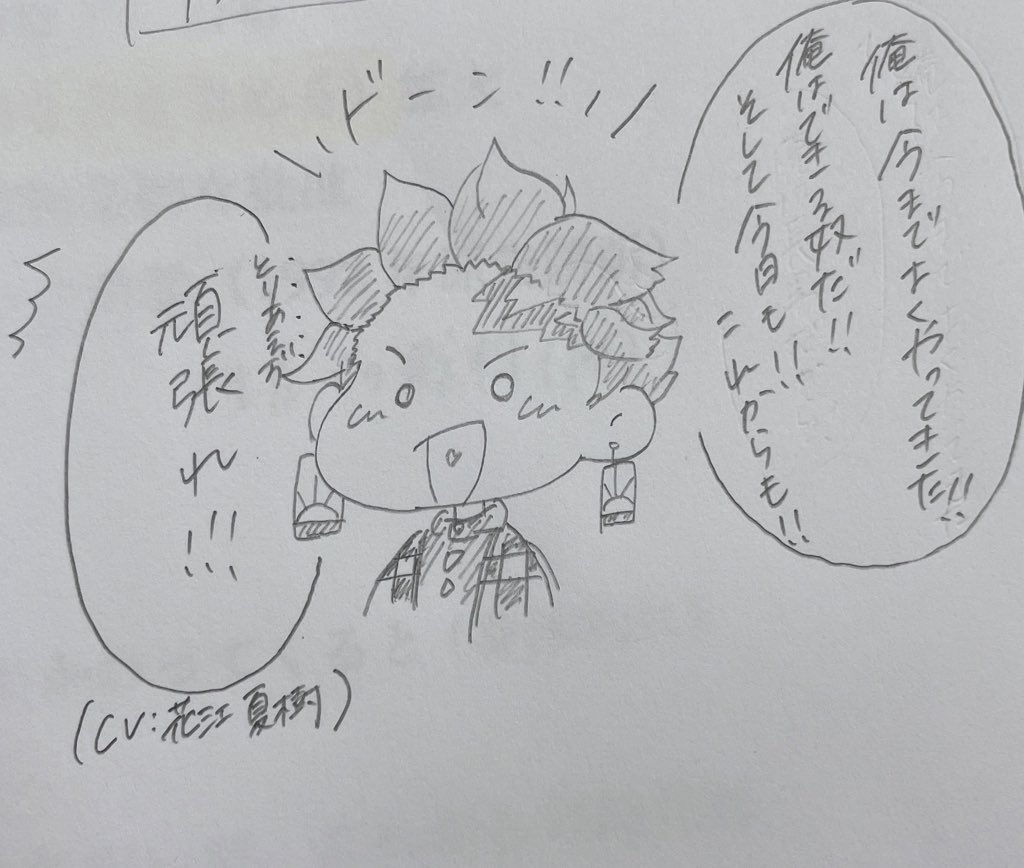 ドーン!!
俺は今までよくやってきた!!
俺はできる奴だ!!
そして今日も!!
これからも!!
とりあえず
頑張れ!!!
(CV:花江夏樹)